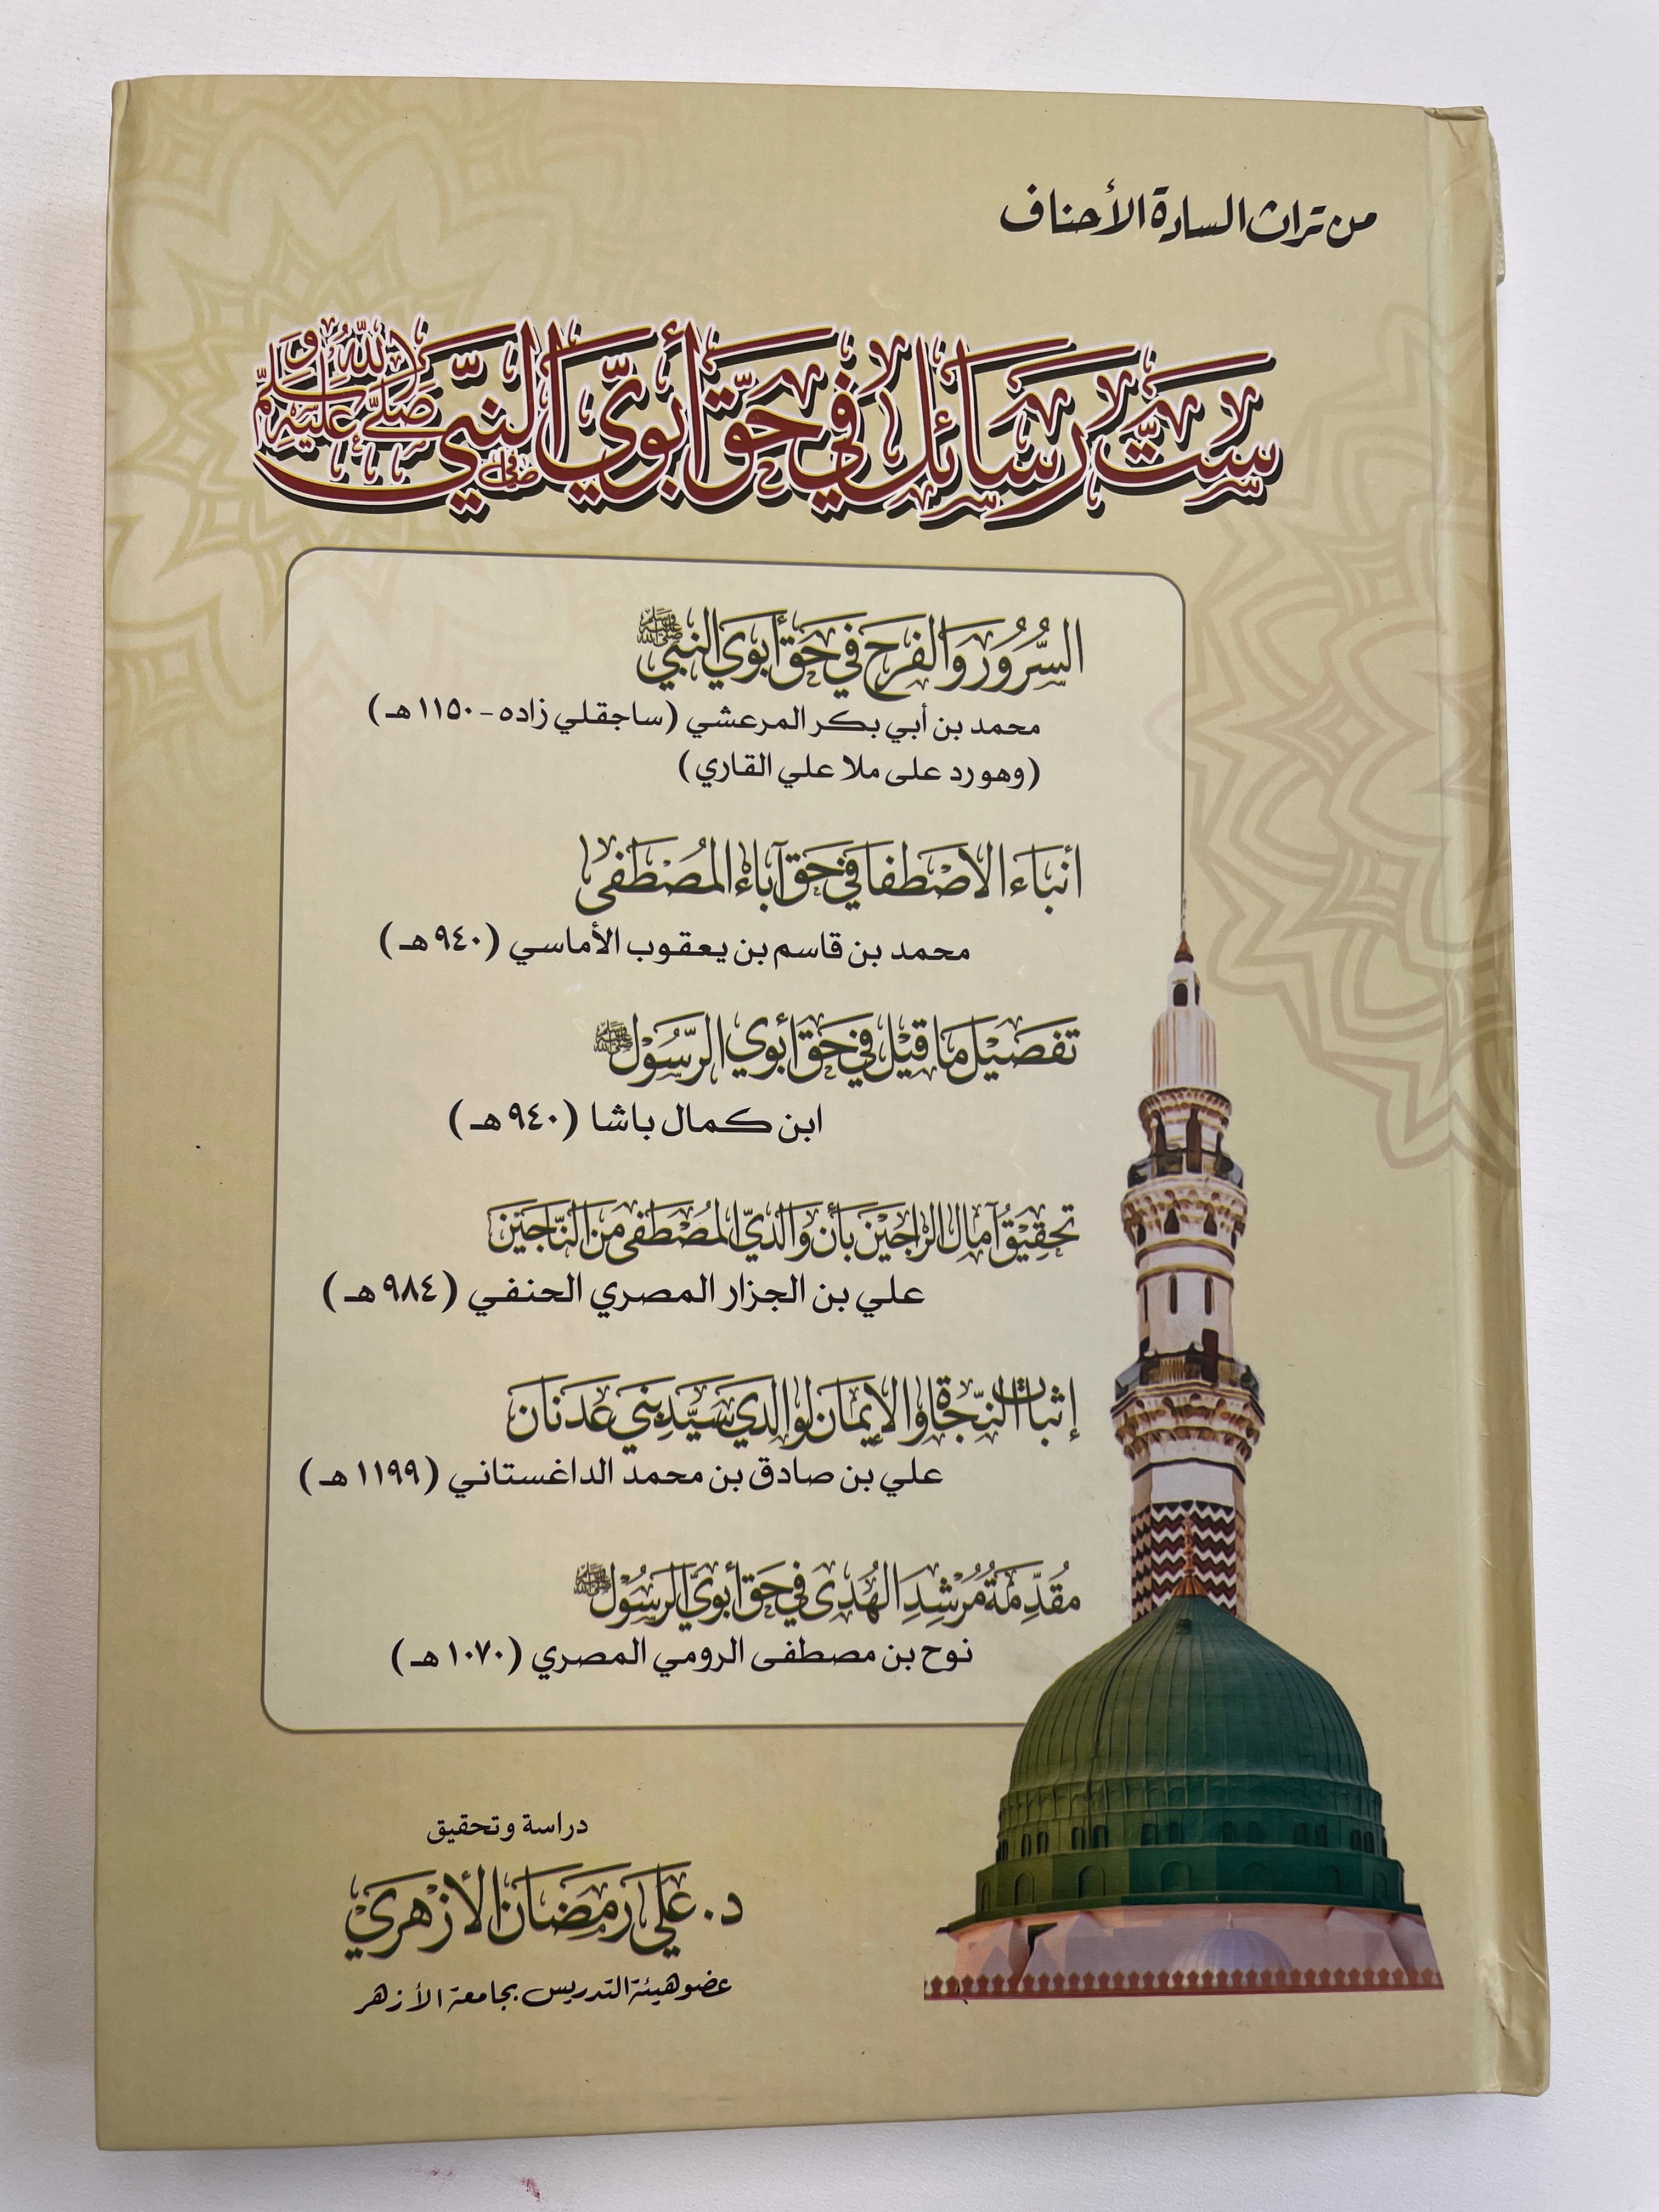 من تراث السادة الأحناف
ست رسائل في حق أبوي النبي صلى الله عليه وسلم
السرور والفرح في حق أبوي النبي ﷺ
محمد بن أبي بكر المرعشي (ساجقلي زاده - ١١٥٠هـ)
(وهو رد على ملا علي القاري)
أنباء الاصطفا في حق آباء المصطفى
محمد بن قاسم بن يعقوب الأماسي (٩٤٠هـ)
تفصيل ما قيل في حق أبوي الرسول ﷺ
ابن كمال باشا (٩٤٠هـ)
تحقيق آمال الراجين بأن والدي المصطفى من الناجين
علي بن الجزار المصري الحنفي (٩٨٤هـ)
إثبات النجاة والإيمان لوالدي سيد بني عدنان
علي بن صادق بن محمد الداغستاني (١١٩٩هـ)
مقدمة مرشد الهدى في حق أبوي الرسول ﷺ
نوح بن مصطفى الرومي المصري (١٠٧٠هـ)
دراسة وتحقيق
د. علي رمضان الأزهري
عضو هيئة التدريس بجامعة الأزهر